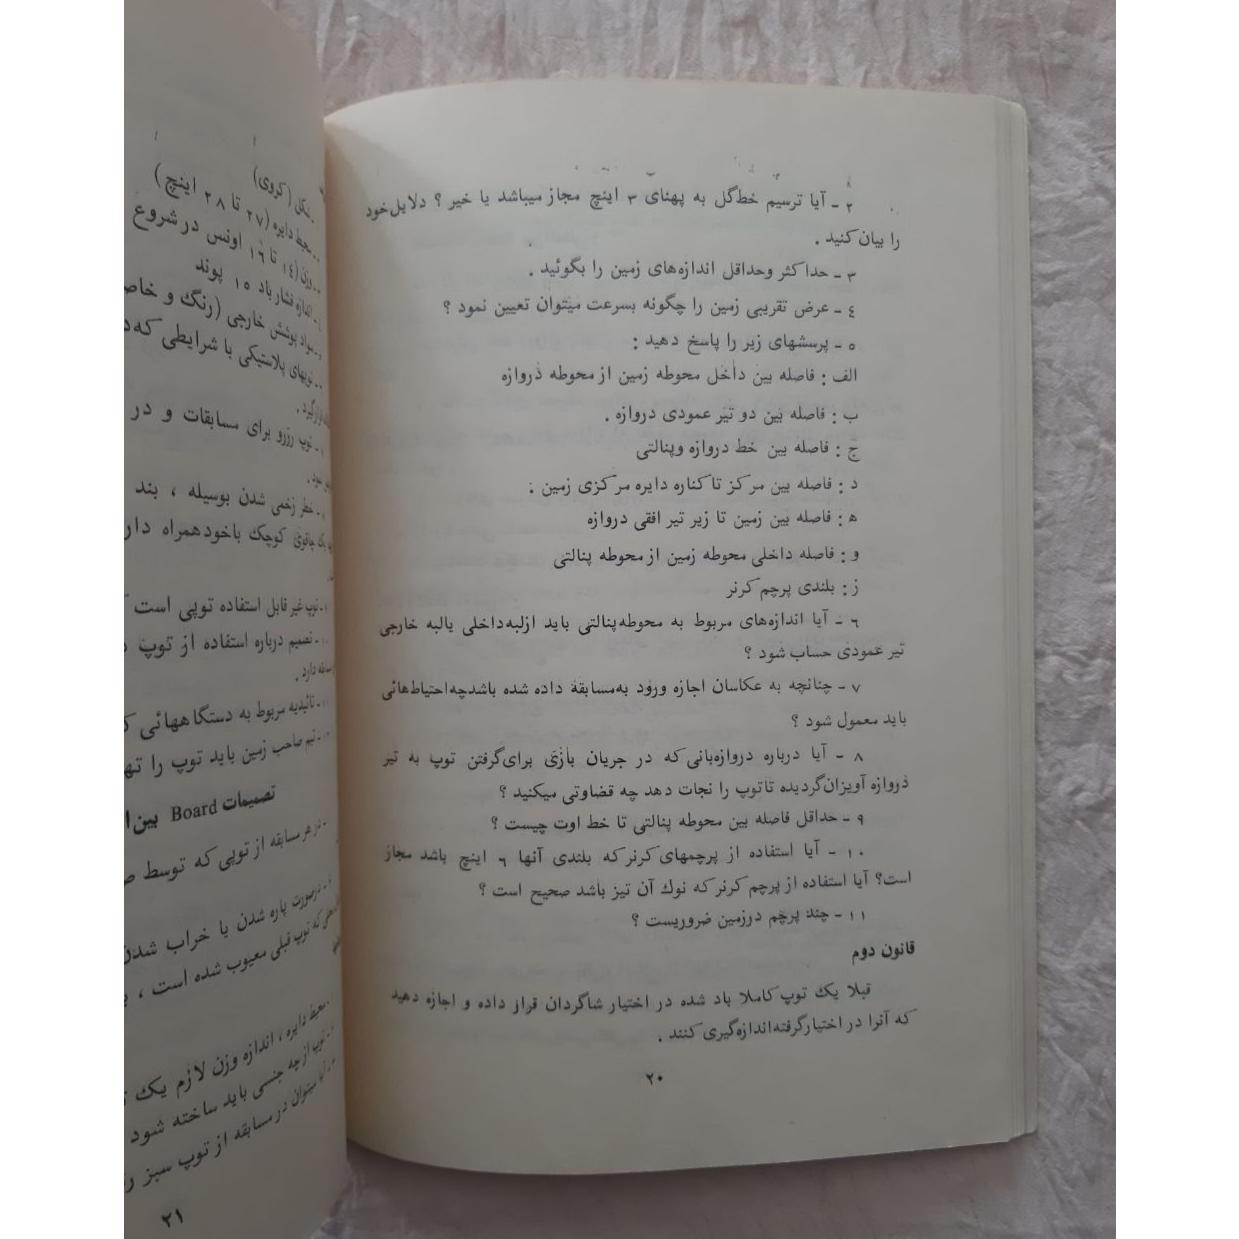 ۲ - آیا ترسیم خط‌گل به پهنای ۳ اینچ مجاز میباشد یا خیر ؟ دلایل خود
را بیان کنید .
۳ - حداکثر وحداقل اندازه‌های زمین را بگوئید .
٤ - عرض تقریبی زمین را چگونه بسرعت میتوان تعیین نمود ؟
٥ - پرسشهای زیر را پاسخ دهید :
الف : فاصله بین داخل محوطه زمین از محوطه دروازه
ب : فاصله بین دو تیر عمودی دروازه .
ج : فاصله بین خط دروازه وپنالتی
د : فاصله بین مرکز تا کناره دایره مرکزی زمین .
ه : فاصله بین زمین تا زیر تیر افقی دروازه
و : فاصله داخلی محوطه زمین از محوطه پنالتی
ز : بلندی پرچم کرنر
٦ - آیا اندازه‌های مربوط به محوطه پنالتی باید ازلبه داخلی یالبه خارجی
تیر عمودی حساب شود ؟
۷ - چنانچه به عکاسان اجازه ورود به مسابقه داده شده باشد چه احتیاط‌هائی
باید معمول شود ؟
۸ - آیا درباره دروازه‌بانی که در جریان بازی برای گرفتن توپ به تیر
دروازه آویزان گردیده تا توپ را نجات دهد چه قضاوتی میکنید ؟
۹ - حداقل فاصله بین محوطه پنالتی تا خط اوت چیست ؟
۱۰ - آیا استفاده از پرچمهای کرنر که بلندی آنها ٦ اینچ باشد مجاز
است؟ آیا استفاده از پرچم کرنر که نوك آن تیز باشد صحیح است ؟
۱۱ - چند پرچم در زمین ضروریست ؟
قانون دوم
قبلا یك توپ کاملا باد شده در اختیار شاگردان قرار داده و اجازه دهید
که آنرا در اختیار گرفته اندازه‌گیری کنند .
۲۰
شکل (کروی)
محیط دایره (۲۷ تا ۲۸ اینچ)
وزن (١٤ تا ١٦ اونس در شروع
اندازه فشار باد ۱٥ پوند
مواد پوشش خارجی (رنگ و
توپهای پلاستیکی با شرایطی که
قرار گیرد .
توپ رزرو برای مسابقات و در
شود .
خطر زخمی شدن بوسیله ، بند
یك چاقوی کوچك باخود همراه
توپ غیر قابل استفاده توپی است
تصمیم درباره استفاده از توپ
دارد .
تائیدیه مربوط به دستگاههائی
تیم صاحب زمین باید توپ را
تصمیمات Board بین
در هر مسابقه از توپی که توسط
درصورت پاره شدن یا خراب شدن
که توپ قبلی معیوب شده است ،
محیط دایره ، اندازه وزن لازم یك
توپ از چه جنسی باید ساخته شود
آیا میتوان در مسابقه از توپ سبز
۲۱